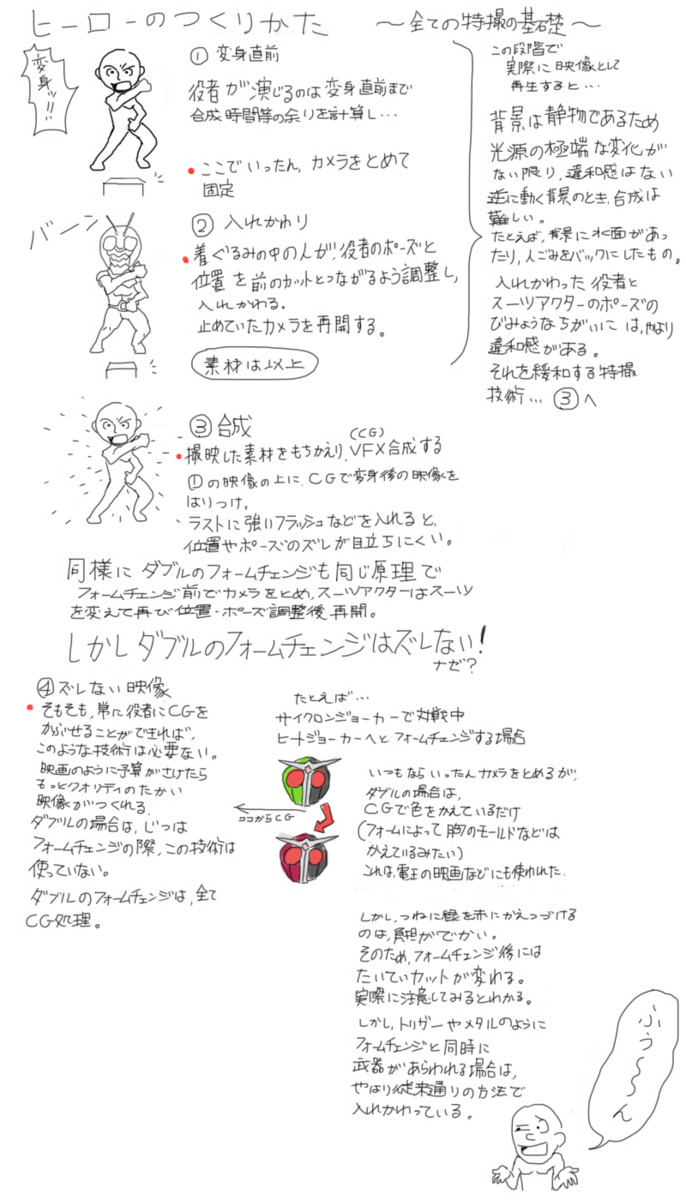 ヒーローのつくりかた
～全ての特撮の基礎～
変身ッ!!!
① 変身直前
役者が演じるのは変身直前まで
合成時間等の余りを計算し…
ここでいったん、カメラをとめて
固定
バーン
② 入れかわり
着ぐるみの中の人が、役者のポーズと
位置を前のカットとつながるよう調整し、
入れかわる。
止めていたカメラを再開する。
素材は以上
この段階で
実際に映像として
再生すると…
背景は静物であるため
光源の極端な変化が
ない限り、違和感はない
逆に動く背景のとき、合成は
難しい。
たとえば、背景に水面があっ
たり、人ごみをバックにしたもの。
入れかわった役者と
スーツアクターのポーズの
びみょうなちがいには、やはり
違和感がある。
それを緩和する特撮
技術… ③へ
③ 合成
撮映した素材をもちかえり、VFX合成する
(CG)
①の映像の上に、CGで変身後の映像を
はりつけ。
ラストに強いフラッシュなどを入れると、
位置やポーズのズレが目立ちにくい。
同様にダブルのフォームチェンジも同じ原理で
フォームチェンジ前でカメラをとめ、スーツアクターはスーツ
を変えて再び位置・ポーズ調整後再開。
しかしダブルのフォームチェンジはズレない!
ナゼ?
④ズレない映像
そもそも、常に役者にCGを
かぶせることができれば、
このような技術は必要ない。
映画のように予算がさけたら
もっとクオリティのたかい
映像がつくれる。
ダブルの場合は、じつは
フォームチェンジの際、この技術は
使っていない。
ダブルのフォームチェンジは、全て
CG処理。
たとえば…
サイクロンジョーカーで対戦中
ヒートジョーカーへとフォームチェンジする場合
ココからCG
いつもならいったんカメラをとめるが、
ダブルの場合は、
CGで色をかえているだけ
(フォームによって胸のモールドなどは
かえているみたい)
これは、電王の映画などにも使われた.
しかし、つねに緑を赤にかえつづける
のは、負担がでかい。
そのため、フォームチェンジ後には
たいていカットが変わる。
実際に注意してみるとわかる。
しかし、トリガーやメタルのように
フォームチェンジと同時に
武器があらわれる場合は、
やはり従来通りの方法で
入れかわっている。
ふぅ～～ん